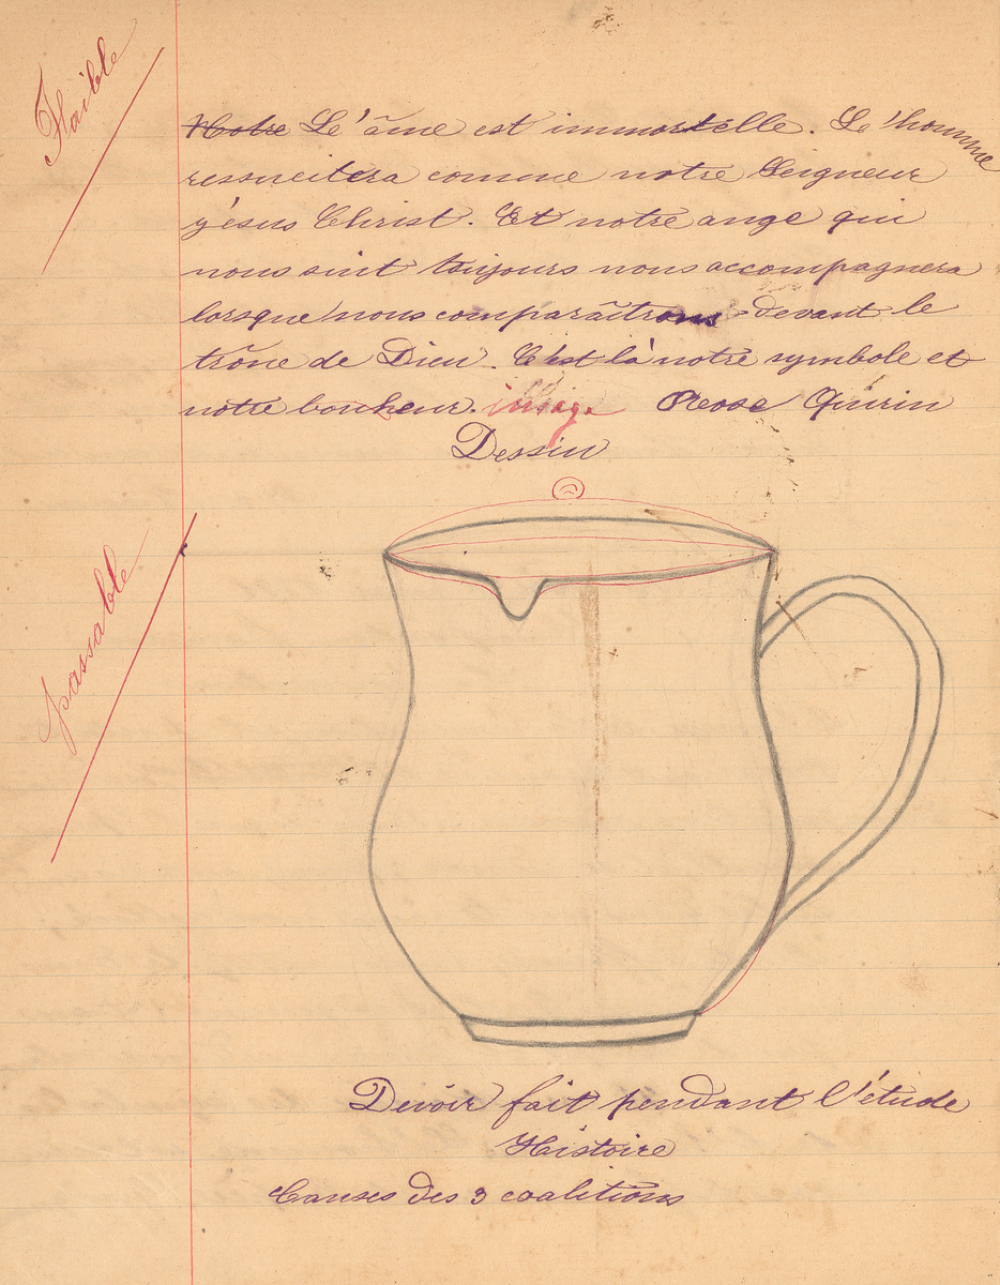 Faible
Notre Le' âme est immortelle. Le 'homme
ressucitera comme notre Seigneur
yésus Christ. Et notre ange qui
nous suit toujours nous accompagnera
lorsque nous comparaîtrons devant le
trône de Dieu. C'est là notre symbole et
notre bonheur. Quirin
Dessin
passable
Devoir fait pendant l'étude
Histoire
Causes des 3 coalitions